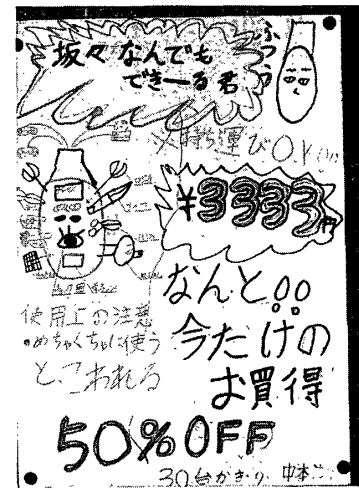 坂々なんでも
できーる君
ふつう
持ち運びO.K
¥3333円
なんと!!
今だけの
お買得
使用上の注意
・めちゃくちゃに使う
と、こわれる
50%OFF
30台かぎり